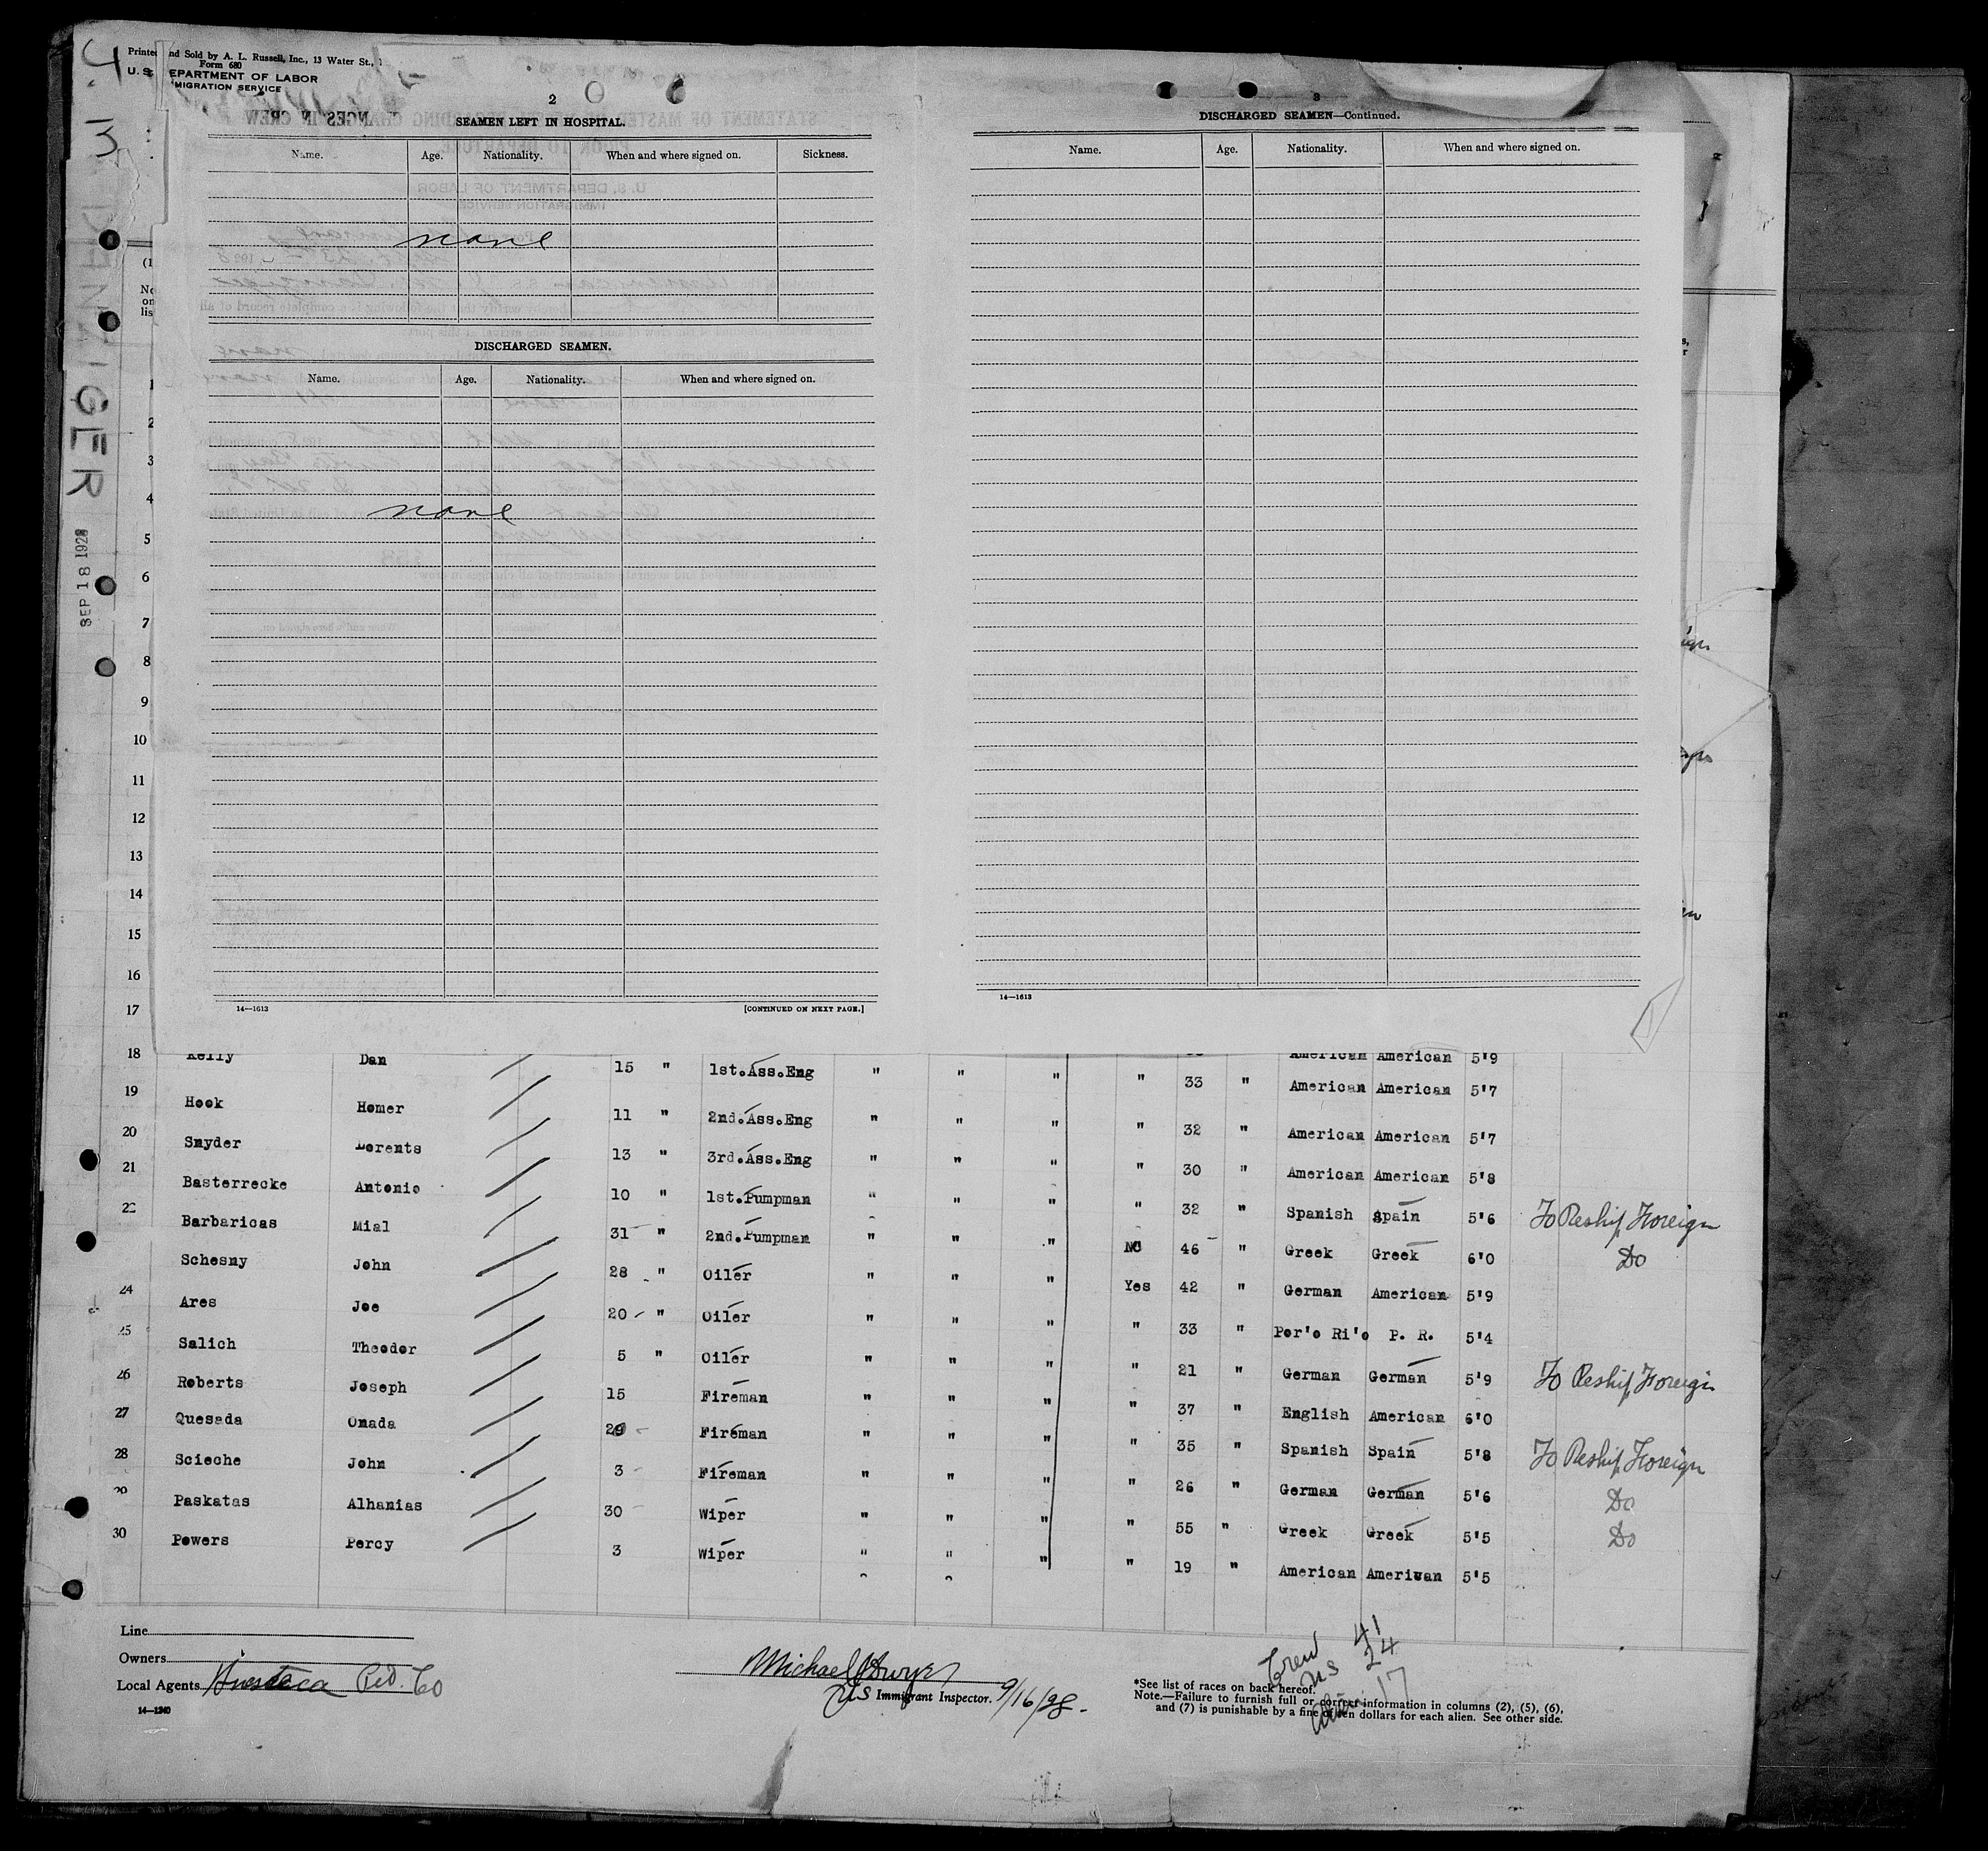 Printed and Sold by A. L. Russell, Inc., 13 Water St.,
Form 680
U. S. DEPARTMENT OF LABOR
IMMIGRATION SERVICE
2
SEAMEN LEFT IN HOSPITAL.
Name. Age. Nationality. When and where signed on. Sickness.
none
DISCHARGED SEAMEN.
Name. Age. Nationality. When and where signed on.
none
14—1613 [CONTINUED ON NEXT PAGE.]
3
DISCHARGED SEAMEN—Continued.
Name. Age. Nationality. When and where signed on.
14—1613
SEP 18 1928
1
2
3
4
5
6
7
8
9
10
11
12
13
14
15
16
17
18 Kelly Dan 15 " 1st.Ass.Eng " " " " 33 " American American 5'9
American American 5'7
19 Hook Homer 11 " 2nd.Ass.Eng " " " " 32 " American American 5'7
20 Snyder Lorents 13 " 3rd.Ass.Eng " " " " 30 " American American 5'8
21 Basterrecke Antonio 10 " 1st.Pumpman " " " " 32 " Spanish Spain 5'6 To Reship Foreign
22 Barbaricas Mial 31 " 2nd.Pumpman " " " NO 46 " Greek Greek 6'0 Do
Schesny John 28 " Oiler " " " Yes 42 " German American 5'9
24 Ares Joe 20 " Oiler " " " " 33 " Por'o Ri'o P. R. 5'4
25 Salich Theodor 5 " Oiler " " " " 21 " German German 5'9 To Reship Foreign
26 Roberts Joseph 15 Fireman " " " " 37 " English American 6'0
27 Quesada Onada 29 Fireman " " " " 35 " Spanish Spain 5'8 To Reship Foreign
28 Scieche John 3 Fireman " " " " 26 " German German 5'6 Do
29 Paskatas Alhanias 30 Wiper " " " " 55 " Greek Greek 5'5 Do
30 Powers Percy 3 Wiper " " " " 19 " American American 5'5
Line
Owners
Local Agents Huasteca Pet. Co
14—1240
Michael Dwyer
US Immigrant Inspector. 9/16/28.
Crew 41
US 24
Alien 17
*See list of races on back hereof.
Note.—Failure to furnish full or correct information in columns (2), (5), (6),
and (7) is punishable by a fine of ten dollars for each alien. See other side.